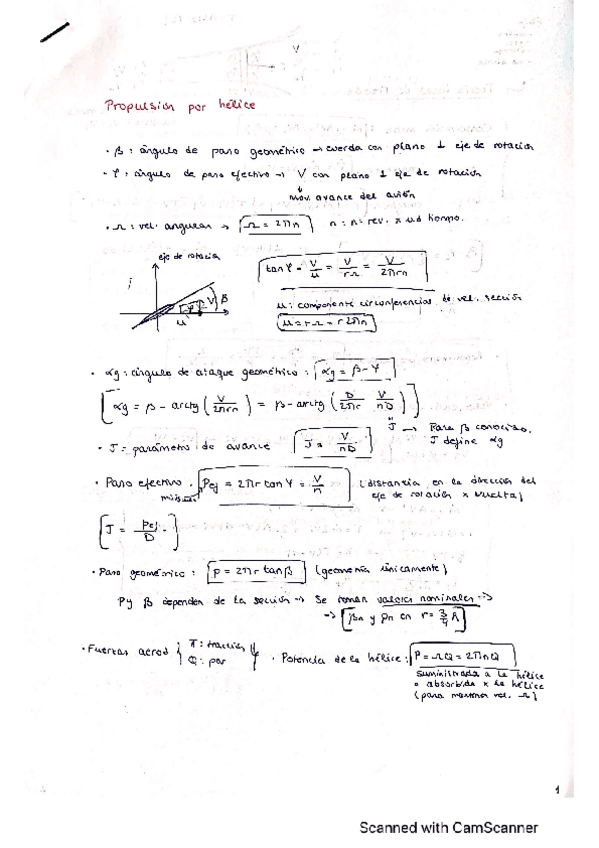 V
Propulsion por hélice
· β : ángulo de paso geométrico → cuerda con plano ⊥ eje de rotación
· φ : ángulo de paso efectivo → V con plano ⊥ eje de rotación
↓
mov. avance del avión
· Ω : vel. angular → Ω = 2πn n : nº rev. x ud tiempo.
eje de rotación
tan φ = V/u = V/rΩ = V/2πrn
V β
φ
u
u : componente circunferencial de vel. sección
u = rΩ = r2πn
· αg : ángulo de ataque geométrico : αg = β - φ
αg = β - arctg (V/2πrn) = β - arctg (D/2πr V/nD)
J → Para β conocido,
J define αg
· J = parámetro de avance J = V/nD
· Paso efectivo : Pef = 2πr tan φ = V/n (distancia en la dirección del
eje de rotación x vuelta)
J = Pef/D
· Paso geométrico : p = 2πr tan β (geometría únicamente)
P y β dependen de la sección → Se toman valores nominales →
→ βn y pn en r = 3/4 R
· Fuerzas aerod { T : tracción
Q : par
· Potencia de la hélice : P = ΩQ = 2πnQ
suministrada a la hélice
o absorbida x la hélice
(para mantener vel. Ω)
1
Scanned with CamScanner